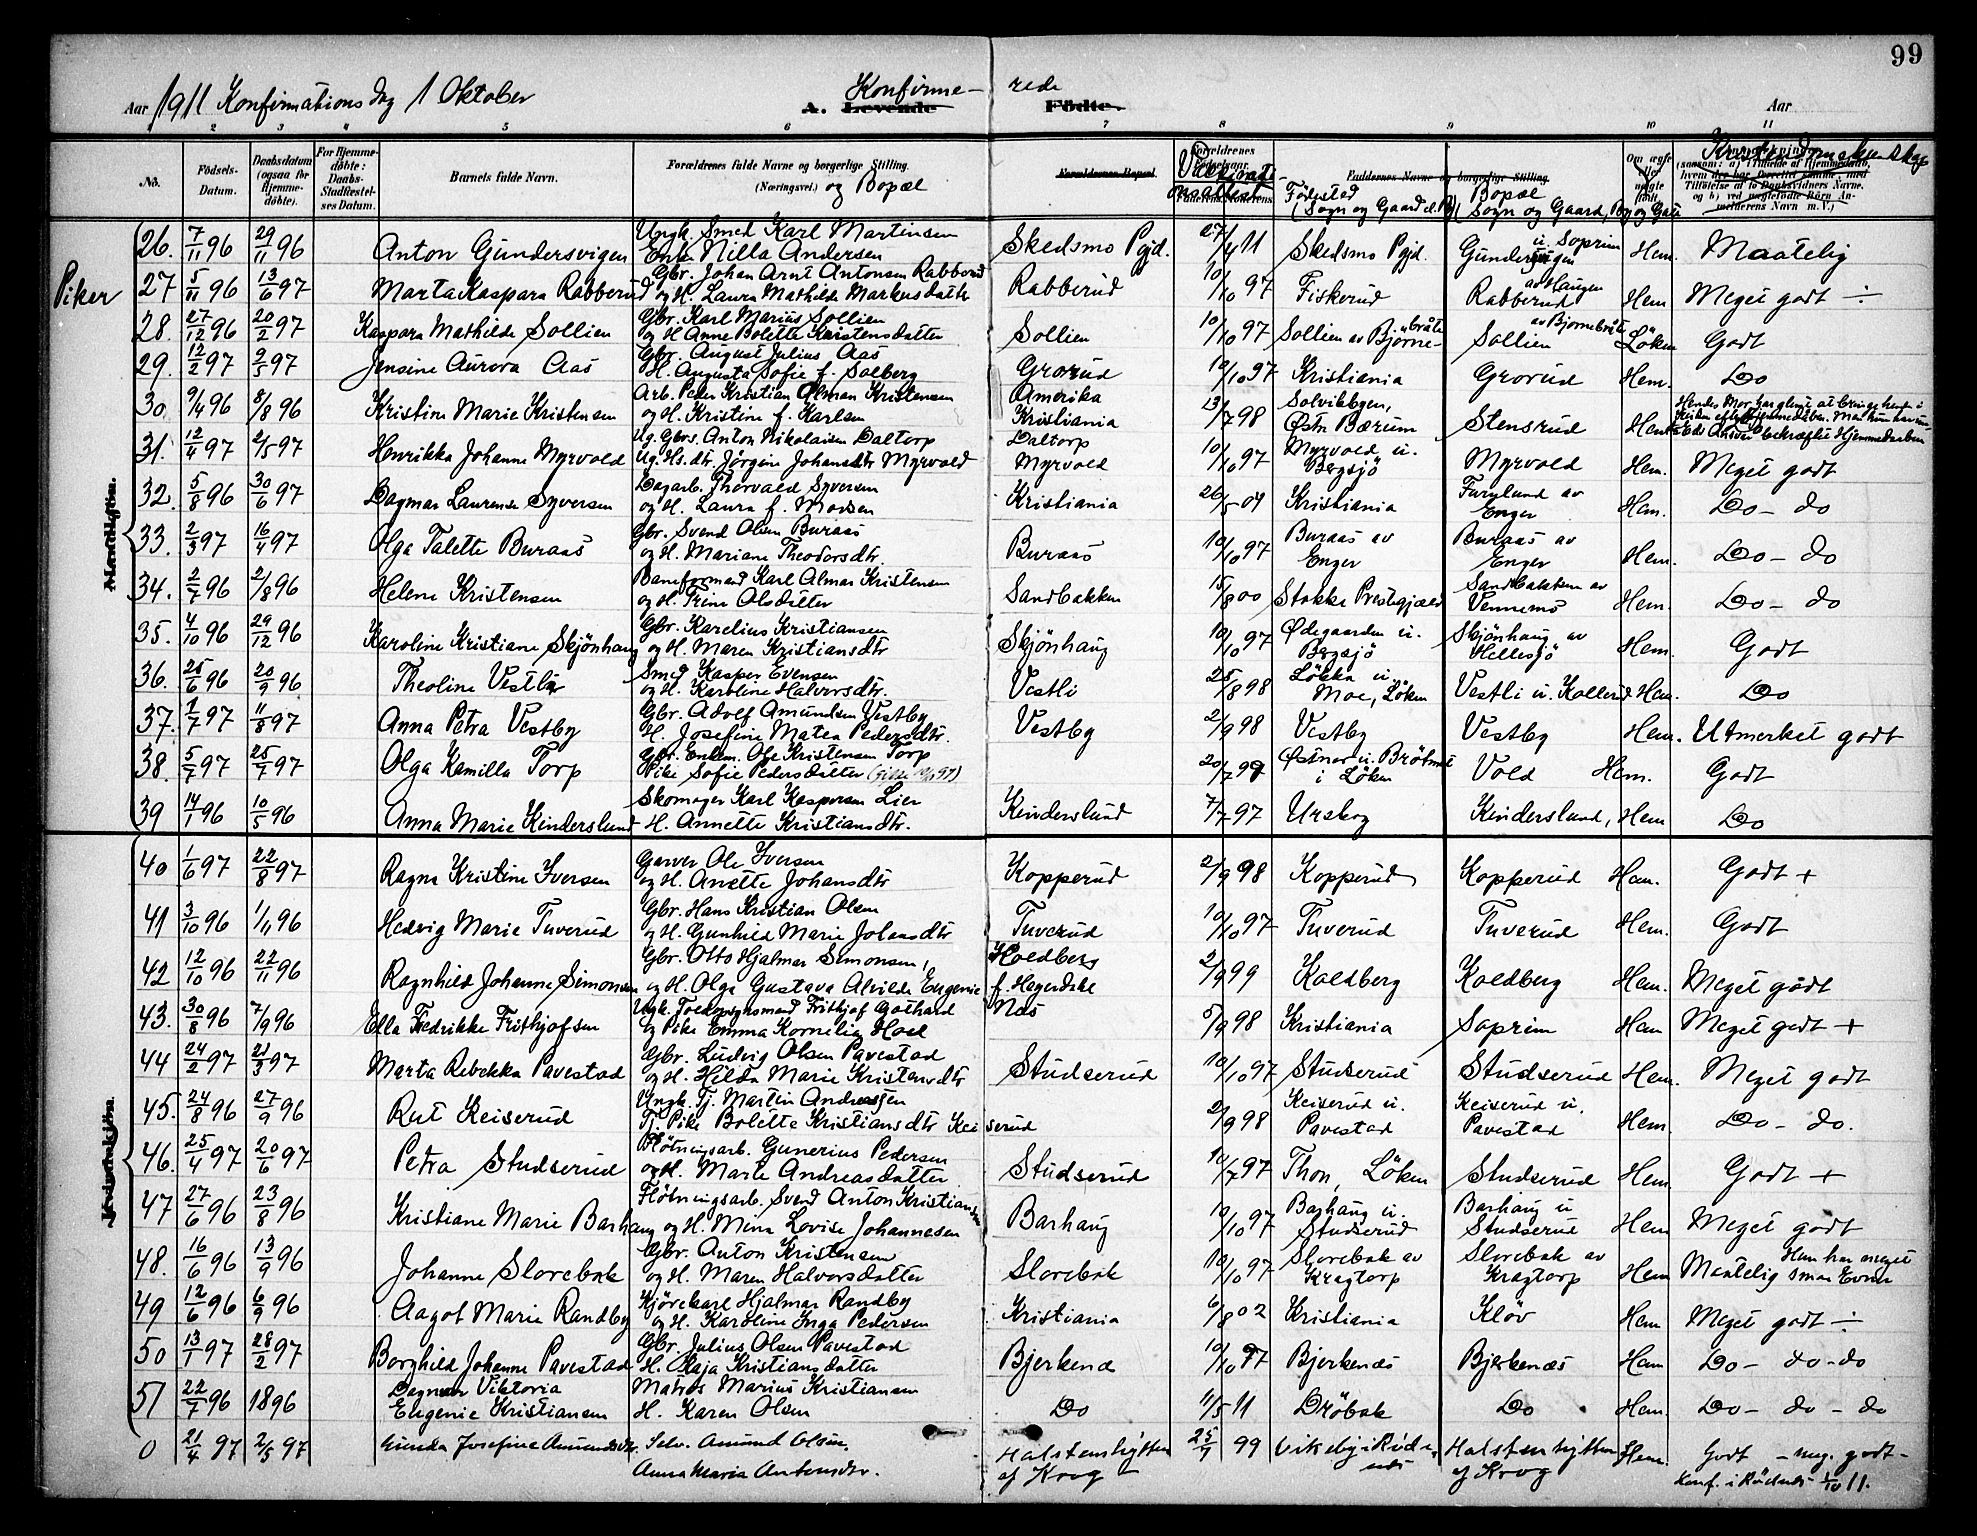 99
Aar 1911 Konfirmations dag 1 Oktober A. Levende Konfirme- rede Födte. Aar
1 2 3 4 5 6 7 8 9 10 11
No. Födsels-Datum. Daabsdatum (ogsaa for Hjemme-döbte). For Hjemme-döbte: Daabs-Stadfæstel-ses Datum. Barnets fulde Navn. Forældrenes fulde Navne og borgerlige Stilling. (Næringsvei.) og Bopæl Forældrenes Bopæl Fødested (Sogn og Gaard el. By) Faddernes Navne og borgerlige Stilling. Bopæl Sogn og Gaard, By og Gate Om ægte eller uægte født. Kristendomskundskap
Piker
26. 7/11 96 29/11 96 Anton Gundersvigen Ungk. Smed Karl Martinsen Enke Nilla Andersen Skedsmo Pgjd. 27/4 11 Skedsmo Pgjd. Gundersvigen u. Soprim Hem. Maatelig
27 5/11 96 13/6 97 Marta Kaspara Rabberud Gbr. Johan Arnt Antonsen Rabberud og H. Laura Mathilde Markusdatter Rabberud 10/10 97 Fiskerud Rabberud av Haugen Hem Meget godt ÷
28. 27/12 96 20/2 97 Kaspara Mathilde Sollien Gbr. Karl Marius Sollien og H Anne Bolette Karstensdatter Sollien 10/10 97 Sollien av Bjørne-bråte Sollien av Bjornebråte Löken Godt
29. 12/2 97 9/5 97 Jensine Aurora Aas Gbr. August Julius Aas H. Augusta Sofie f. Solberg Grorud 10/10 97 Kristiania Grorud Hem. Do
30. 9/4 96 8/8 96 Kristine Marie Kristensen Arb. Peder Kristian Alman Kristensen og H. Kristine f. Karlsen Amerika Kristiania 13/7 98 Solvikbgen, Østn Bærum Stensrud Hem
31. 12/4 97 2/5 97 Henrikka Johanne Myrvold Ug. Gbrs. Anton Nikolaisen Daltorp Ug. Hs. dtr. Jørgine Johansdtr Myrvold Daltorp Myrvold 10/10 97 Myrvold u. Bergsjö Myrvold Hem. Meget godt
32. 5/8 96 30/6 97 Dagmar Laurense Syversen Dagarb. Thorvald Syversen og H. Laura f. Madsen Kristiania 26/5 04 Kristiania Furulund av Enger Hem. Do - do
33. 2/3 97 16/4 97 Olga Talette Buraas Gbr. Svend Olsen Buraas og H. Mariane Theodorsdtr. Buraas 10/10 97 Buraas av Enger Buraas av Enger Hem. Do - do
34. 2/7 96 2/8 96 Helene Kristensen Baneformand Karl Almar Kristensen og H. Trine Olsdatter Sandbakken 15/8 00 Stokke Prestegjæld Sandbakken av Vennemo Hem. Do - do
35. 4/10 96 29/12 96 Karoline Kristiane Skjönhaug Gbr. Karelius Kristiansen og H. Maren Kristiansdtr Skjönhaug 10/10 97 Ødegaarden u. Bergsjö Skjönhaug av Hellesjö Hem. Godt
36. 25/6 96 20/9 96 Theoline Vestli Smed Kasper Evensen og H. Karoline Halvorsdtr. Vestli 28/8 98 Løkka u. Moe, Löken Vestli u. Kollerud Hem. Do
37. 1/7 97 11/8 97 Anna Petra Vestby Gbr. Adolf Amundsen Vestby H. Josefine Matea Pedersdtr. Vestby 2/9 98 Vestby Vestby Hem. Utmerket godt
38. 5/7 97 25/7 97 Olga Kamilla Torp Gbr. Enkem. Ole Kristensen Torp Pike Sofie Pedersdatter 20/7 99 i Löken Vold Hem. Godt
39 14/1 96 10/5 96 Anna Marie Kinderslund Skomager Karl Kaspersen Lier H. Annette Kristiansdtr. Kinderslund 7/7 97 Urskog Kinderslund, Hem Do
40 1/6 97 22/8 97 Ragna Kristine Iversen Garver Ole Iversen og H. Anette Johansdtr Kopperud 2/9 98 Kopperud Kopperud Hem. Godt +
41 3/10 96 1/11 96 Hedvig Marie Tuverud Gbr. Hans Kristian Olsen og H. Gunhild Marie Johansdtr Tuverud 10/10 97 Tuverud Tuverud Hem. Godt
42 12/10 96 22/11 96 Ragnhild Johanne Simonsen Gbr. Otto Hjalmar Simonsen, og H. Olga Gustava Alvilde Eugenie f. Hegerdske Koldberg 2/9 99 Koldberg Koldberg Hem. Meget godt
43. 30/8 96 7/9 96 Ella Fredrikke Frithjofsen Ungk. Frithjof Gothard og Pike Emma Kornelia Hoel Nas 5/9 98 Kristiania Soprim Hem Meget godt +
44 24/2 97 21/3 97 Marta Rebekka Pavestad Gbr. Ludvig Olsen Pavestad og H. Hilda Marie Kristensdtr Studserud 10/10 97 Studserud Studserud Hem. Meget godt
45. 24/8 96 27/9 96 Rut Keiserud Ungk. Tj. Martin Andreassen Tj. Pike Bolette Kristiansdtr Keiserud 2/9 98 Keiserud u. Pavestad Keiserud u. Pavestad Hem. Do - do.
46. 25/4 97 20/6 97 Petra Studserud Fløtningsarb. Gunerius Pedersen og H. Marte Andreasdatter Studserud 10/7 97 Thon, Löken Studserud Hem. Godt +
47 27/6 96 23/8 96 Kristiane Marie Barhaug Fløtningsarb. Svend Anton Kristiansen og H. Mina Lovise Johannesen Barhaug 10/10 97 Barhaug u. Studserud Barhaug u Studserud Hem Meget godt
48. 16/6 96 13/9 96 Johanne Slorebak Gbr. Anton Kristensen og H. Maren Halvorsdatter Slorebak 10/10 97 Slorebak av Kragtorp Slorebak av Kragtorp Hem Maatelig Hun har meget smaa Evner
49 12/6 96 6/9 96 Aagot Marie Randby Kjörekarl Hjalmar Randby og H. Karoline Inga Pedersen Kristiania 6/8 02 Kristiania Kløv Hem Meget godt ÷
50 13/1 97 28/2 97 Borghild Johanne Pavestad Gbr. Julius Olsen Pavestad H. Kaja Kristiansdatter Bjerkenæs 10/10 97 Bjerkenæs Bjerkenæs Hem Do - do - do
51 22/7 96 1896 Dagmar Viktoria Eugenie Kristiansen Matros Marius Kristiansen H. Karen Olsen Do 11/5 11 Dröbak Do Hem. Do - do - do
0 21/4 97 2/5 97 Josefine Selv. Amund Olsen. Anna Maria Antonsdtr. Halstenshytten af Krog 25/1 99 Halstenshytten af Krog Hem. Godt - meg. godt - Konf. i Rödenes 1/10 11.